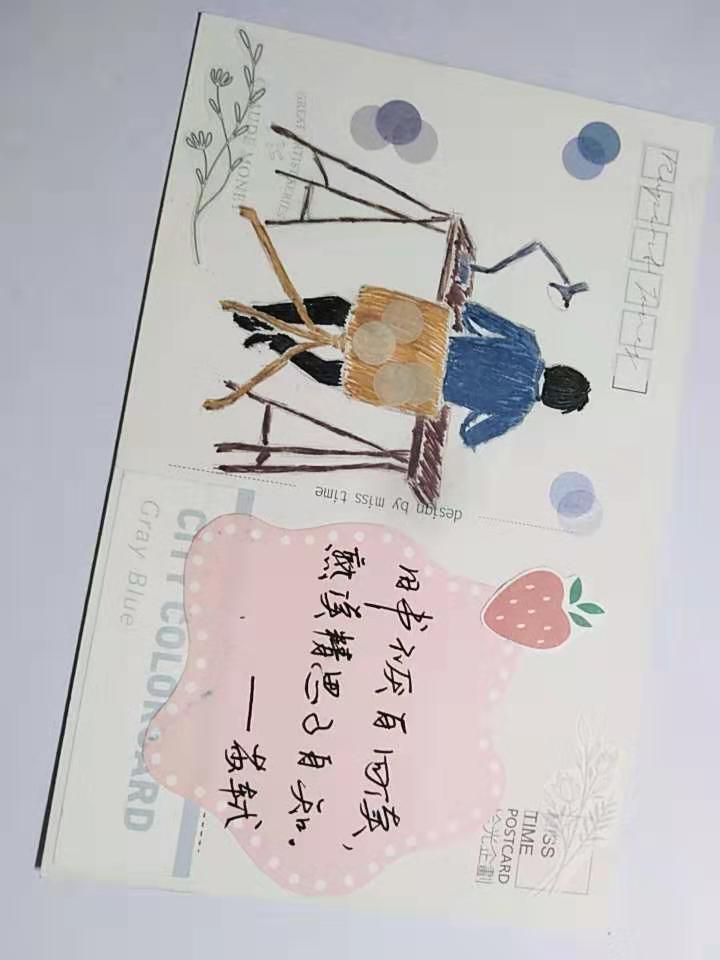 CLAUDE MONET
GREAT ARTIST SERIES
design by miss time
旧书不厌百回读，
熟读精思子自知。
——苏轼
CITY COLOR CARD
Gray Blue
MISS
TIME
POSTCARD